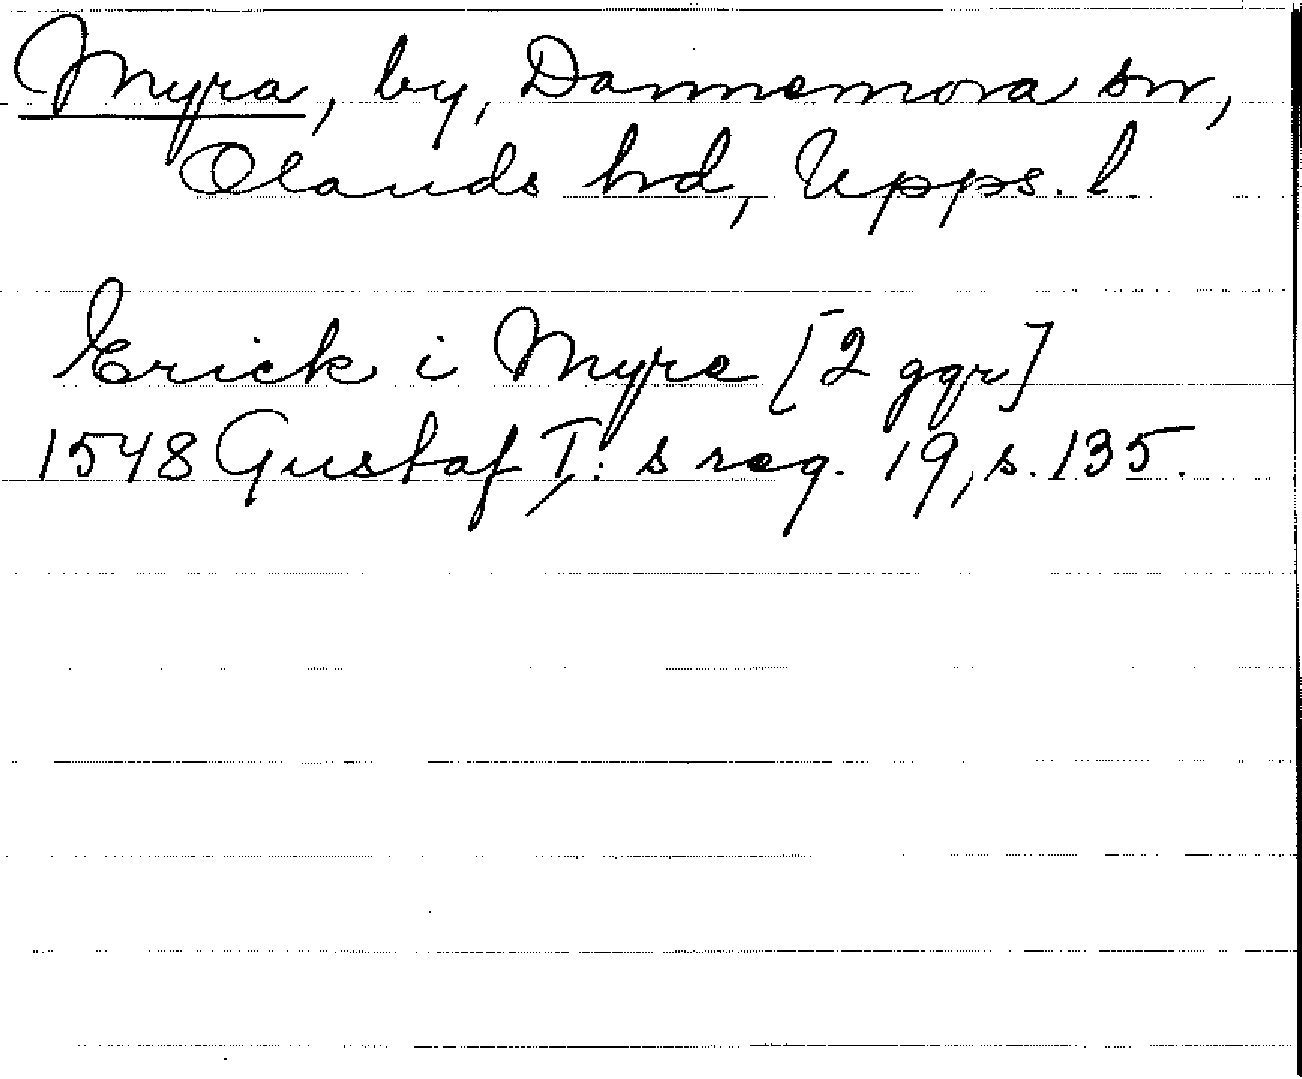 Myra, by, Dannemora sn,
Olands hd, Upps. l
Erick i Myre [2 ggr]
1548 Gustaf I: s reg. 19, s. 135.